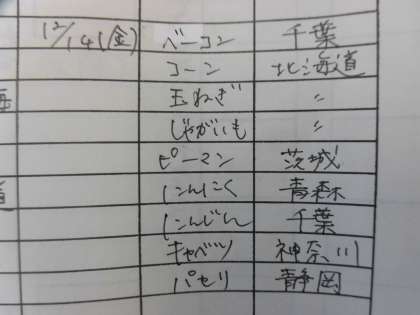 12/14(金) ベーコン 千葉
コーン 北海道
玉ねぎ 〃
じゃがいも 〃
ピーマン 茨城
にんにく 青森
にんじん 千葉
キャベツ 神奈川
パセリ 静岡